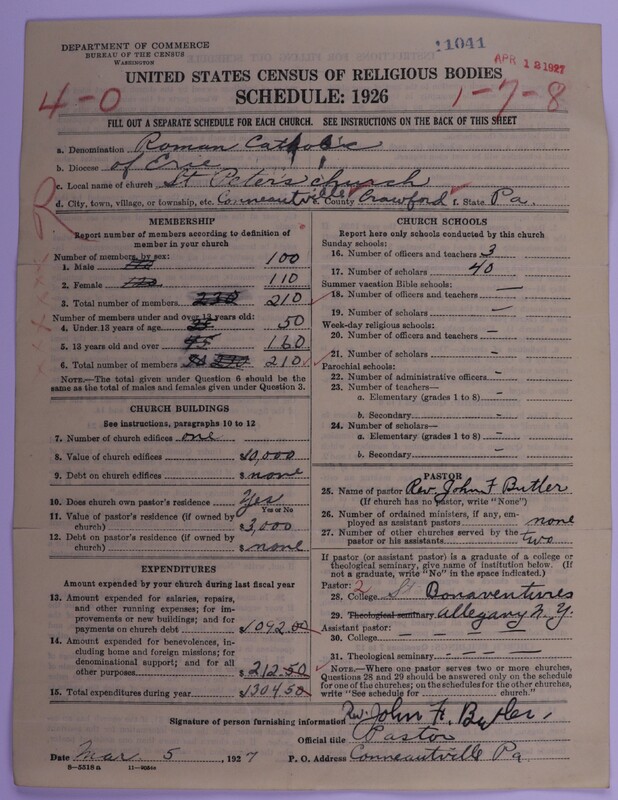 DEPARTMENT OF COMMERCE
BUREAU OF THE CENSUS
WASHINGTON
11041
APR 12 1927
UNITED STATES CENSUS OF RELIGIOUS BODIES
SCHEDULE: 1926
4-0
1-7-8
FILL OUT A SEPARATE SCHEDULE FOR EACH CHURCH. SEE INSTRUCTIONS ON THE BACK OF THIS SHEET
a. Denomination Roman Catholic
b. Diocese of Erie
c. Local name of church St Peter's church
d. City, town, village, or township, etc. Conneautville County Crawford f. State Pa.
MEMBERSHIP
Report number of members according to definition of
member in your church
Number of members, by sex:
1. Male 100
2. Female 110
3. Total number of members 210
Number of members under and over 13 years old:
4. Under 13 years of age 50
5. 13 years old and over 160
6. Total number of members 210
NOTE.—The total given under Question 6 should be the
same as the total of males and females given under Question 3.
CHURCH BUILDINGS
See instructions, paragraphs 10 to 12
7. Number of church edifices one
8. Value of church edifices $10,000
9. Debt on church edifices $ none
10. Does church own pastor's residence? Yes
Yes or No
11. Value of pastor's residence (if owned by
church) $3,000
12. Debt on pastor's residence (if owned by
church) $ none
EXPENDITURES
Amount expended by your church during last fiscal year
13. Amount expended for salaries, repairs,
and other running expenses; for im-
provements or new buildings; and for
payments on church debt $1092.00
14. Amount expended for benevolences, in-
cluding home and foreign missions; for
denominational support; and for all
other purposes $212.50
15. Total expenditures during year $1304.50
CHURCH SCHOOLS
Report here only schools conducted by this church
Sunday schools:
16. Number of officers and teachers 3
17. Number of scholars 40
Summer vacation Bible schools: —
18. Number of officers and teachers
19. Number of scholars —
Week-day religious schools:
20. Number of officers and teachers —
21. Number of scholars —
Parochial schools:
22. Number of administrative officers —
23. Number of teachers—
a. Elementary (grades 1 to 8) —
b. Secondary —
24. Number of scholars—
a. Elementary (grades 1 to 8) —
b. Secondary —
PASTOR
25. Name of pastor Rev. John F Butler
(If church has no pastor, write "None")
26. Number of ordained ministers, if any, em-
ployed as assistant pastors none
27. Number of other churches served by the
pastor or his assistants two
If pastor (or assistant pastor) is a graduate of a college or
theological seminary, give name of institution below. (If
not a graduate, write "No" in the space indicated.)
Pastor: 2
28. College St Bonaventures
29. Theological seminary Allegany N.Y.
Assistant pastor:
30. College — — — —
31. Theological seminary — — — —
NOTE.—Where one pastor serves two or more churches,
Questions 28 and 29 should be answered only on the schedule
for one of the churches; on the schedules for the other churches,
write "See schedule for church."
Signature of person furnishing information Rev. John F. Butler.
Official title Pastor
Date Mar 5, 1927 P. O. Address Conneautville Pa
8—5518 a